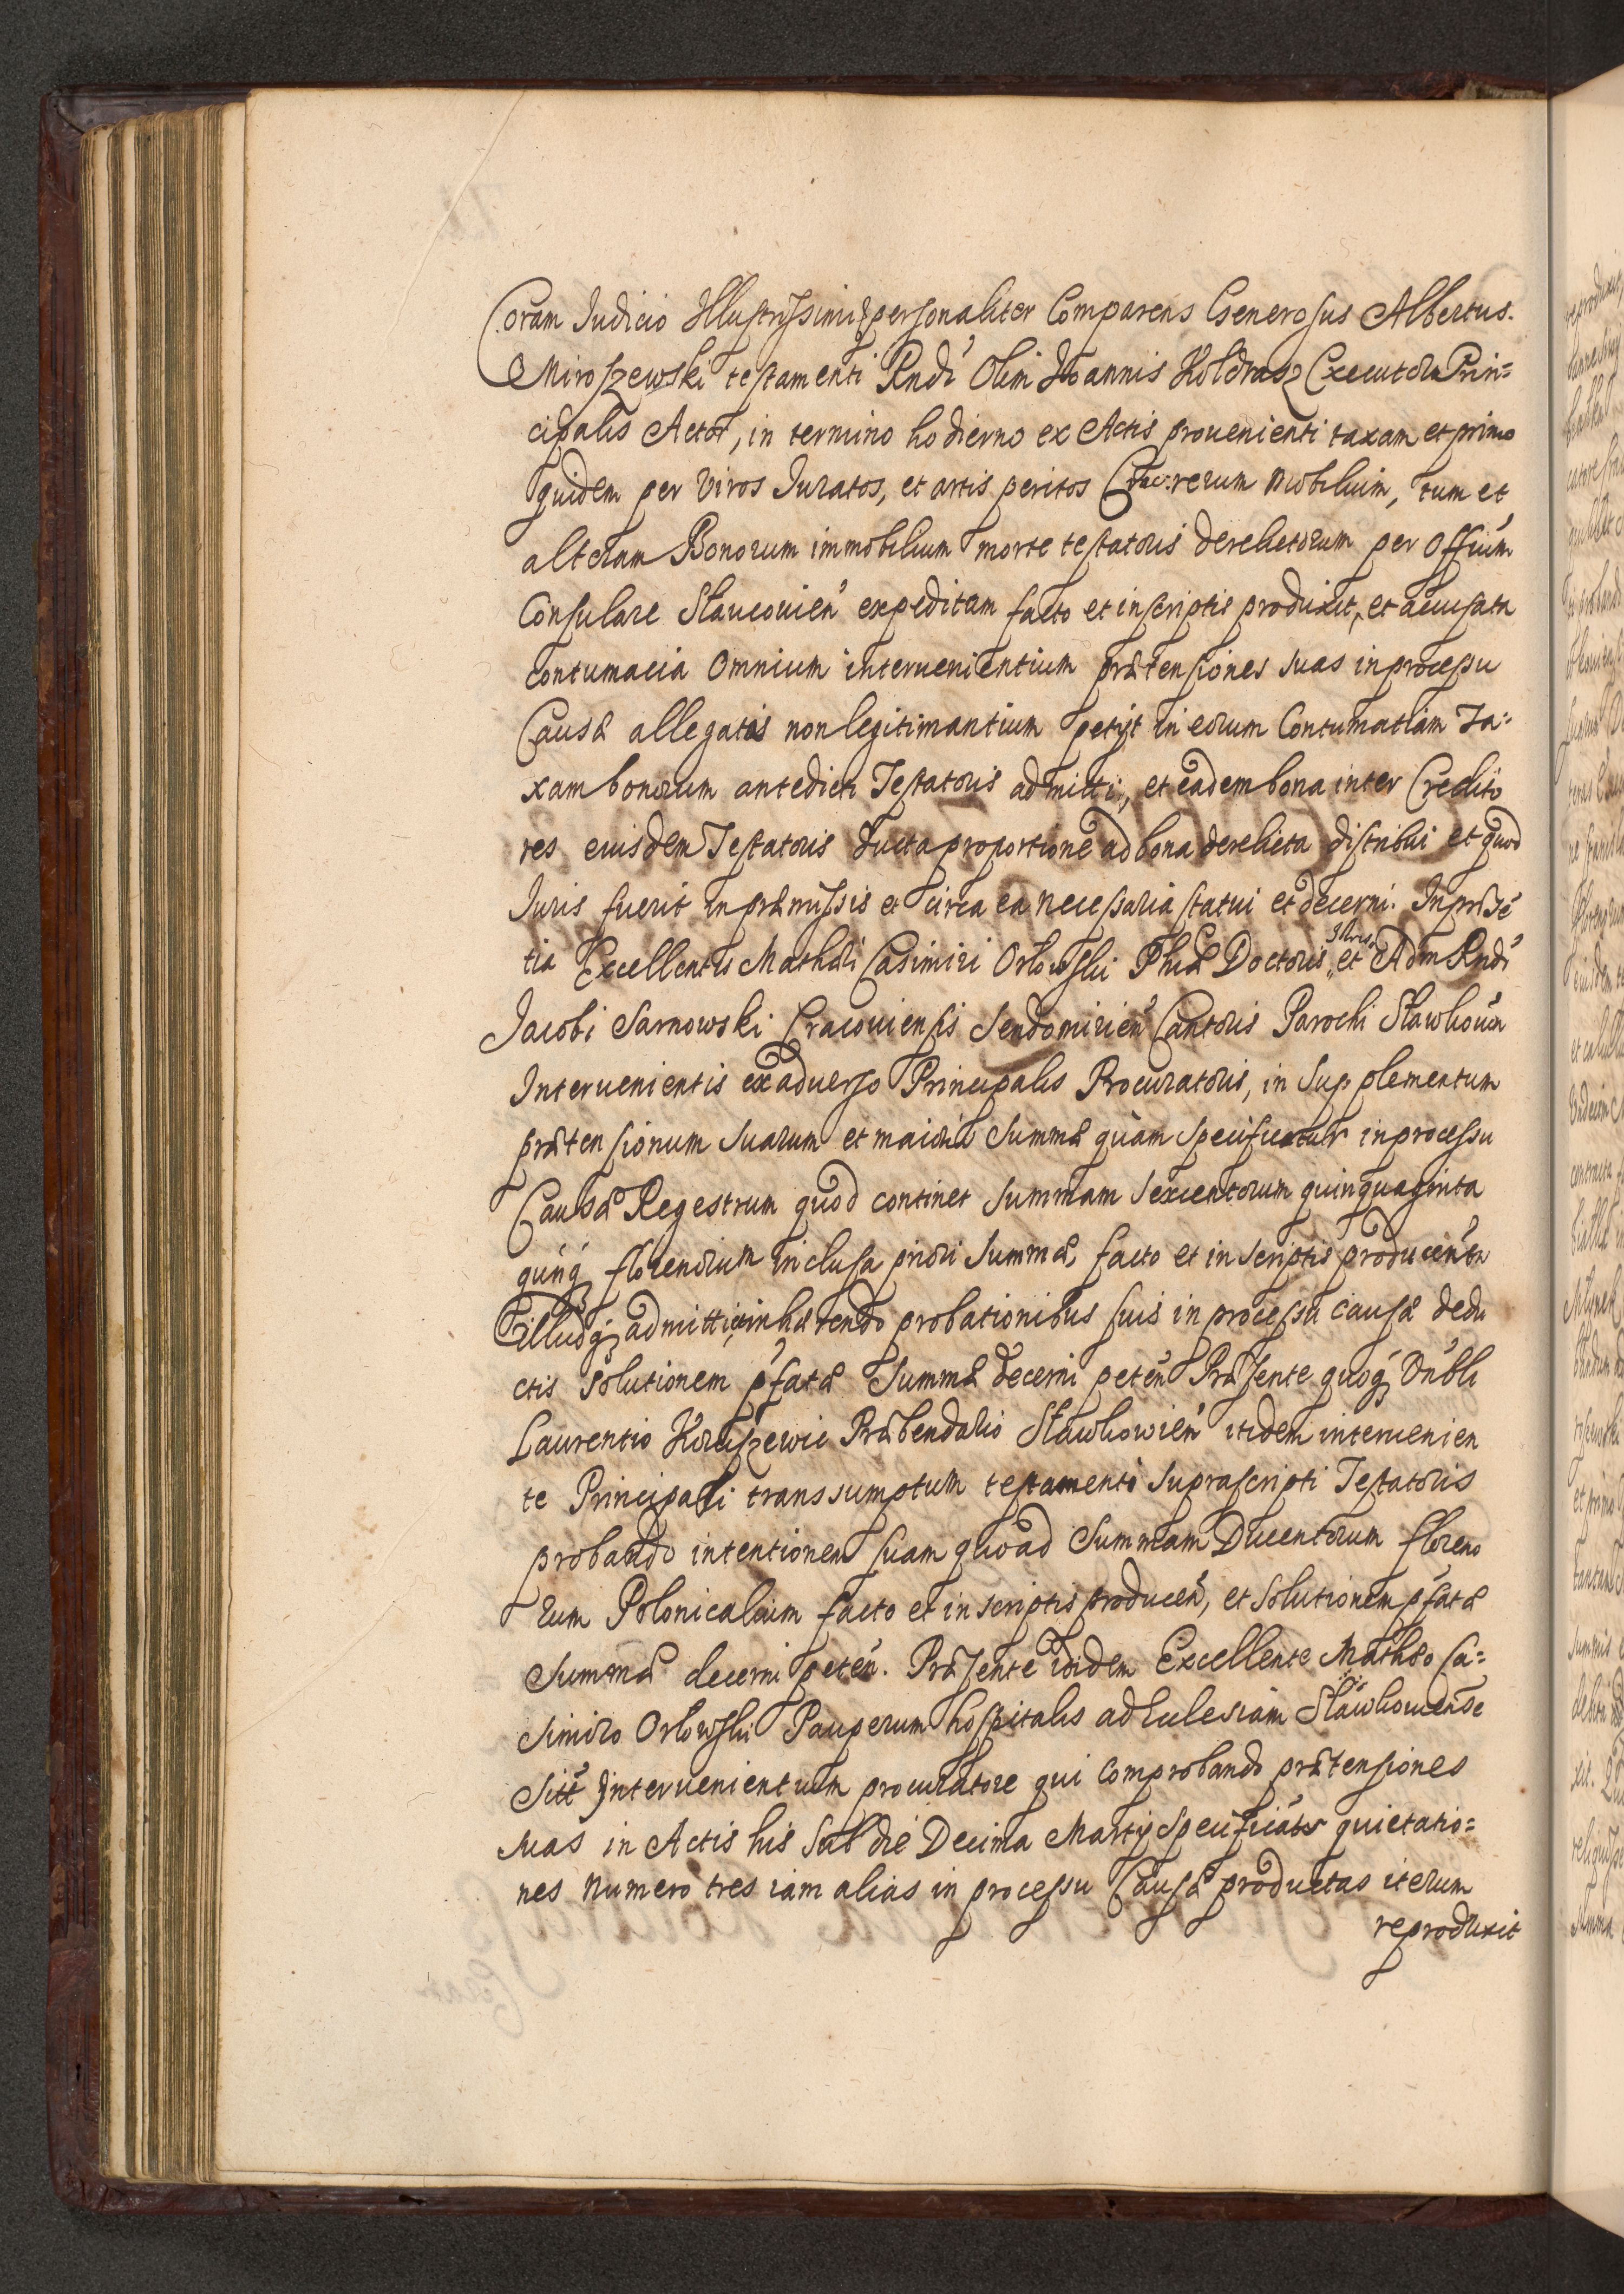 Coram Judicio Illustrissimi personaliter Comparens Generosus Albertus.
Miroszewski testamenti Rndi Olim Joannis Holdrasz Executor Prin=
cipalis Actor, in termino hodierno ex Actis prouenienti taxam et primo
quidem per Viros Juratos, et artis peritos rerum mobilium, tum et
alteram Bonorum immobilium morte testatoris derelictorum per Offium
Consulare Slaucouien expeditam facto et in scriptis produxit, et accusata
contumacia Omnium interuenientium prætensiones suas in processu
Causæ allegatas non legitimantium petijt in eorum Contumatiam Ta=
xam bonorum antedicti Testatoris admitti, et eadem bona inter Credito
res eiusdem Testatoris ducta proportione ad bona derelicta distribui et quod
Juris fuerit in præmissis et circa ea necessaria statui et decerni. In præsé
tia Excellentis Mathæi Casimiri Orłowski Phiæ Doctoris, et Adm Rndi
Jacobi Sarnowski Cracouiensis Sendomirien Cantoris Parochi Sławkouien
Interuenientis ex aduerso Principalis Procuratoris, in Supplementum
prætensionum suarum et maioris Summæ quàm specificatur in processu
Causæ Regestrum quod continet summam sexcentorum quinquaginta
quinq florenorum inclusa priori summæ, facto et in scriptis producen
Illudq admitti, et inhærendo probationibus suis in processu causæ dedu
ctis solutionem pfatæ Summæ decerni peten Præsente quoq Dnbli
Laurentio Koraszewic Præbendario Sławkowien itidem interuenien
te Principali transsumptum testamenti suprascripti Testatoris
probando intentionem suam quoad Summam Ducentorum floreno
rum Polonicalium facto et in scriptis producen, et solutionem pfatæ
Summæ decerni peten. Præsente itidem Excellente Mathæo Ca=
simiro Orłowski Pauperum hospitalis ad Eulesiam Sławkouiense
Sitt Interuenientium procuratore qui comprobando prætensiones
suas in Actis his sub die Decima Martij specificatas quietatio=
nes numero tres iam alias in processu Causæ productas iterum
reproduxit